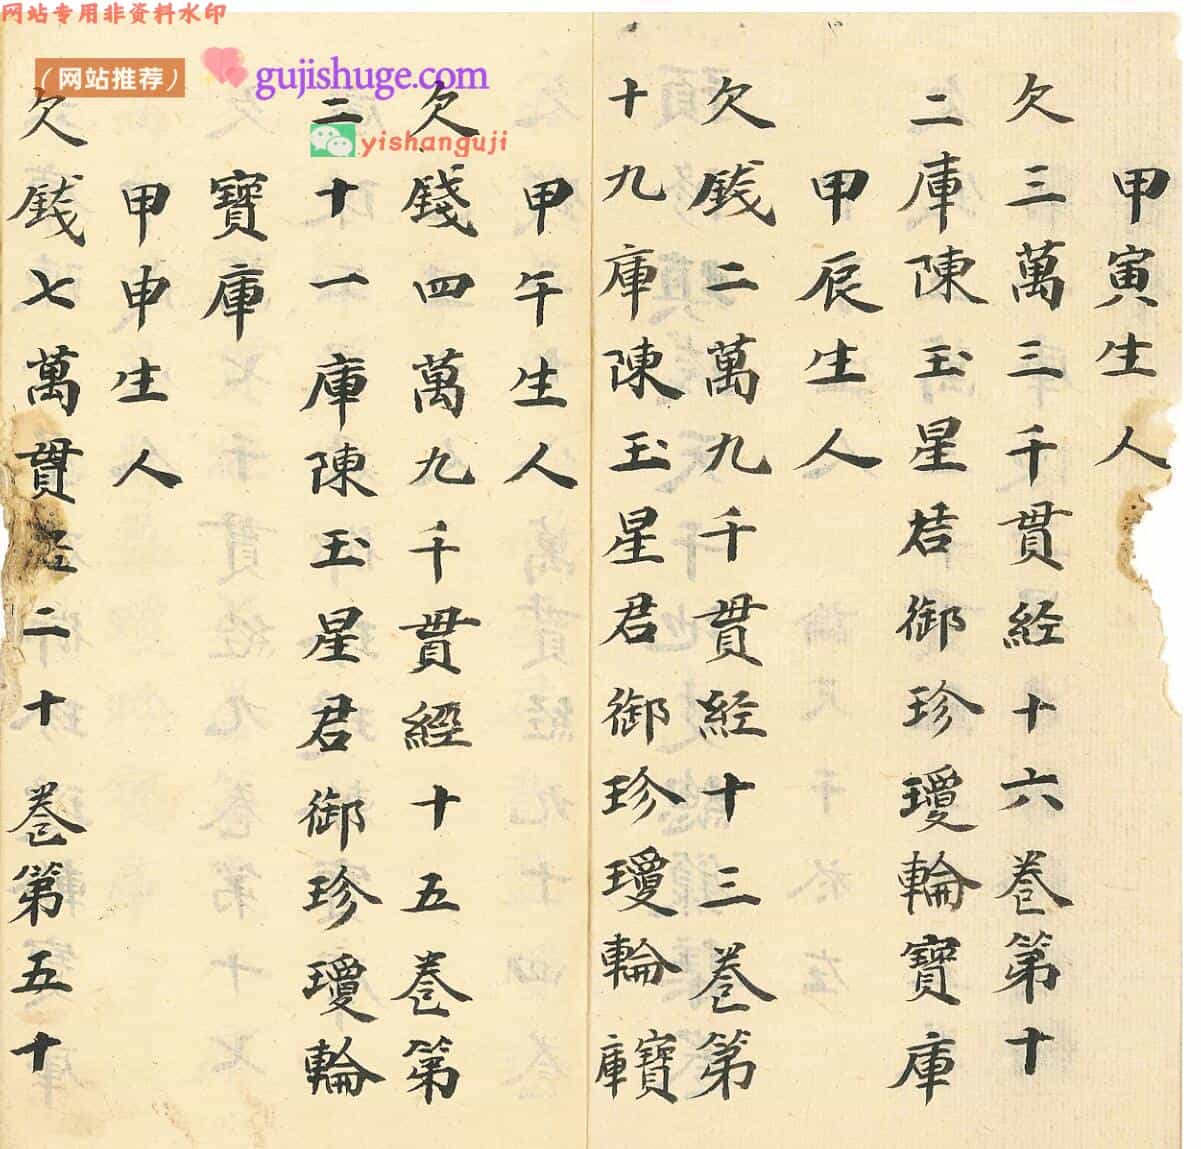 网站专用非资料水印
(网站推荐)
gujishuge.com
yishanguji
甲寅生人
欠三萬三千貫経十六巻第十
二庫陳玉星君御珍瓊輪寶庫
甲辰生人
欠銭二萬九千貫経十三巻第
十九庫陳玉星君御珍瓊輪寶庫
甲午生人
欠錢四萬九千貫經十五巻第
二十一庫陳玉星君御珍瓊輪
寶庫
甲申生人
欠銭七萬貫经二十巻第五十